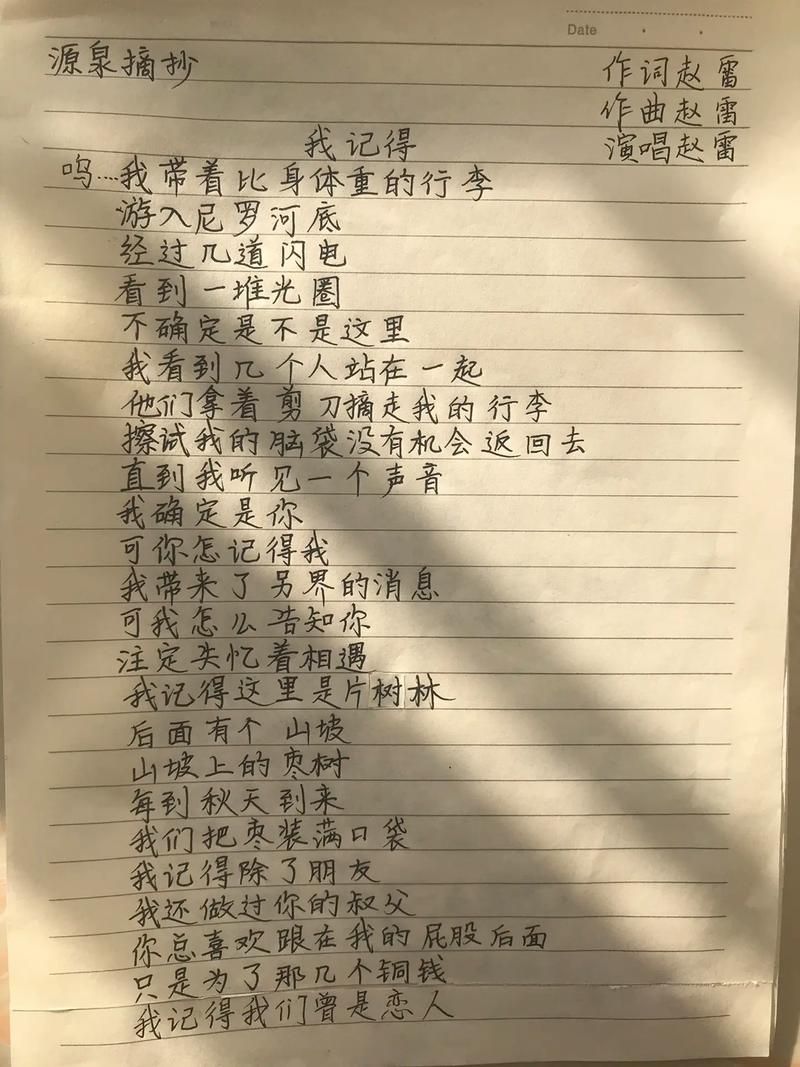 Date
源泉摘抄
作词赵雷
作曲赵雷
我记得
演唱赵雷
呜....我带着比身体重的行李
游入尼罗河底
经过几道闪电
看到一堆光圈
不确定是不是这里
我看到几个人站在一起
他们拿着剪刀摘走我的行李
擦试我的脑袋没有机会返回去
直到我听见一个声音
我确定是你
可你怎记得我
我带来了另界的消息
可我怎么告知你
注定失忆着相遇
我记得这里是片树林
后面有个山坡
山坡上的枣树
每到秋天到来
我们把枣装满口袋
我记得除了朋友
我还做过你的叔父
你总喜欢跟在我的屁股后面
只是为了那几个铜钱
我记得我们曾是恋人